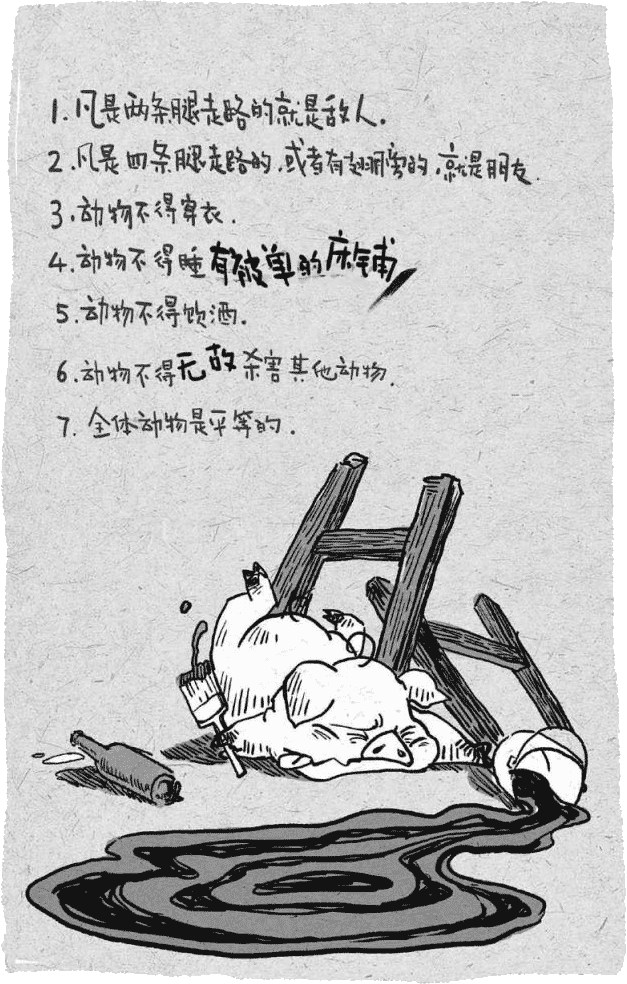 1.凡是两条腿走路的就是敌人.
2.凡是四条腿走路的.或者有翅膀的.就是朋友.
3.动物不得穿衣.
4.动物不得睡有被单的床铺
5.动物不得饮酒.
6.动物不得无故杀害其他动物.
7.全体动物是平等的.